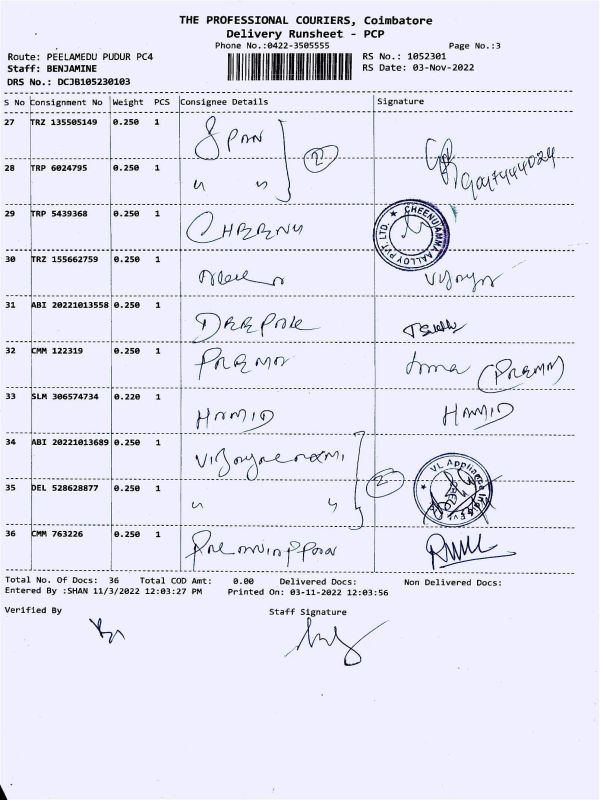 THE PROFESSIONAL COURIERS, Coimbatore
Delivery Runsheet - PCP
Phone No.:0422-3505555
Page No.:3
Route: PEELAMEDU PUDUR PC4
RS No.: 1052301
Staff: BENJAMINE
RS Date: 03-Nov-2022
DRS No.: DCJB105230103
S No Consignment No Weight PCS Consignee Details Signature
27 TRZ 135505149 0.250 1 SPAN
2
28 TRP 6024795 0.250 1 " "
29 TRP 5439368 0.250 1 CHEENU
CHEENUAMMA AALLOY PVT. LTD.
30 TRZ 155662759 0.250 1
31 ABI 20221013558 0.250 1 DEEPAK
32 CMM 122319 0.250 1 PREMA (PREMA)
33 SLM 306574734 0.220 1 HAMID HAMID
34 ABI 20221013689 0.250 1
2
VL Appliance
35 DEL 528628877 0.250 1 " "
36 CMM 763226 0.250 1
Total No. Of Docs: 36 Total COD Amt: 0.00 Delivered Docs: Non Delivered Docs:
Entered By :SHAN 11/3/2022 12:03:27 PM Printed On: 03-11-2022 12:03:56
Verified By Staff Signature